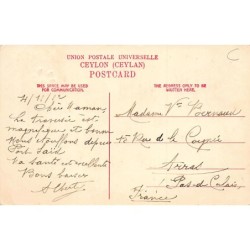 UNION POSTALE UNIVERSELLE
CEYLON (CEYLAN)
POSTCARD
THIS SPACE MAY BE USED
FOR COMMUNICATION.
THE ADDRESS ONLY TO BE
WRITTEN HERE.
Chère Maman,
La traversée est
magnifique et
Nous étouffons depuis
Port Saïd
La santé est excellente
Bons baisers
Albert
Madame Vve
45 Rue de la
Arras
Pas-de-Calais
France
C